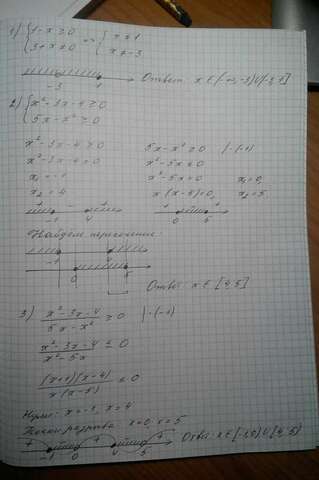 1) { 1 - x ≥ 0 => { x ≤ 1
3 + x ≠ 0 x ≠ -3
-3 1 Ответ: x ∈ (-∞, -3) ∪ (-3, 1]
2) { x² - 3x - 4 ≥ 0
5x - x² ≥ 0
x² - 3x - 4 ≥ 0 5x - x² ≥ 0 | · (-1)
x² - 3x - 4 = 0 x² - 5x ≤ 0
x₁ = -1 x² - 5x = 0 x₁ = 0,
x₂ = 4 x (x - 5) = 0, x₂ = 5.
+ - + + - +
-1 4 0 5
Найдем пересечение:
-1 4
0 5
Ответ: x ∈ [4, 5]
3) x² - 3x - 4 / 5x - x² ≥ 0 | · (-1)
x² - 3x - 4 / x² - 5x ≤ 0
(x+1)(x-4) / x (x-5) ≤ 0
Нули: x = -1, x = 4
Точки разрыва: x = 0, x = 5
+ - + - +
-1 0 4 5 Ответ: x ∈ [-1, 0) ∪ [4, 5)